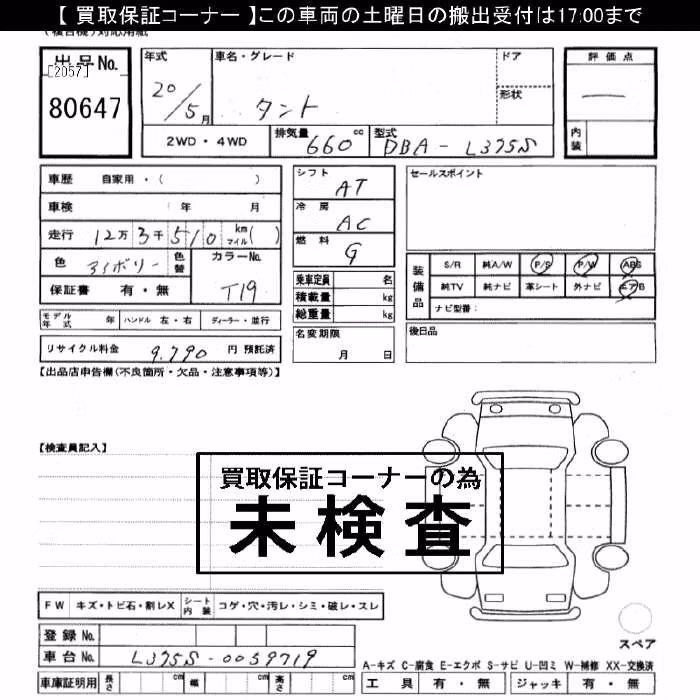 【 買取保証コーナー 】この車両の土曜日の搬出受付は17:00まで
出品No.
[2057]
80647
年式
20/5月
車名・グレード
タント
ドア
形状
2WD・4WD
排気量
660 cc
型式
DBA-L375S
評価点
内装
車歴 自家用・( )
車検 年 月
走行 12万3千510 km マイル( )
色 アイボリー 色替
カラーNo.
T19
保証書 有・無
シフト AT
冷房 AC
燃料 G
乗車定員 名
積載量 kg
総重量 kg
セールスポイント
装備品
S/R 純A/W P/S P/W ABS
純TV 純ナビ 革シート 外ナビ エアB
ナビ型番:
モデル年式 年 ハンドル 左・右 ディーラー・並行
名変期限 月 日
後日品
リサイクル料金 9,790 円 預託済
【出品店申告欄(不良箇所・欠品・注意事項等)】
【検査員記入】
買取保証コーナーの為
未検査
FW キズ・トビ石・割レX シート内装 コゲ・穴・汚レ・シミ・破レ・スレ
登録No.
車台No. L375S-0059719
スペア
A-キズ C-腐食 E-エクボ S-サビ U-凹ミ W-補修 XX-交換済
車庫証明用 長さ cm 幅 cm 高さ cm
工具 有・無 ジャッキ 有・無